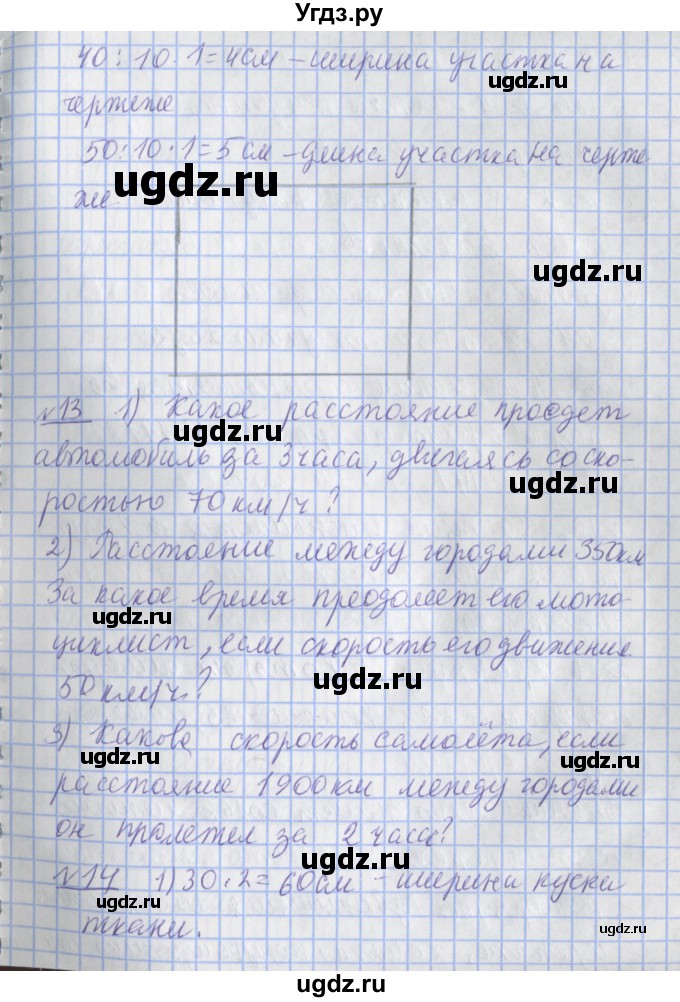 Угдз.ру
40 : 10 · 1 = 4 см – ширина участка на
чертеже
50 : 10 · 1 = 5 см – длина участка на черте
же
№13 1) Какое расстояние проедет
автомобиль за 3 часа, двигаясь со ско-
ростью 70 км/ч?
2) Расстояние между городами 350 км
За какое время преодолеет его мото-
циклист, если скорость его движения
50 км/ч?
3) Какова скорость самолёта, если
расстояние 1900 км между городами
он пролетел за 2 часа?
№14 1) 30 · 2 = 60 см – ширина куска
ткани.
ugdz.ru
ugdz.ru
ugdz.ru
ugdz.ru
ugdz.ru
ugdz.ru
ugdz.ru
ugdz.ru
ugdz.ru
ugdz.ru
ugdz.ru
ugdz.ru
ugdz.ru